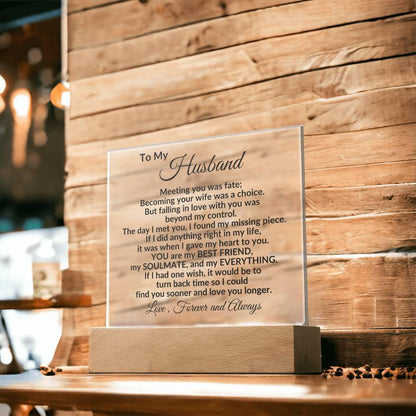 To My Husband
Meeting you was fate;
Becoming your wife was a choice.
But falling in love with you was
beyond my control.
The day I met you, I found my missing piece.
If I did anything right in my life,
it was when I gave my heart to you.
YOU are my BEST FRIEND,
my SOULMATE, and my EVERYTHING.
If I had one wish, it would be to
turn back time so I could
find you sooner and love you longer.
Love , Forever and Always